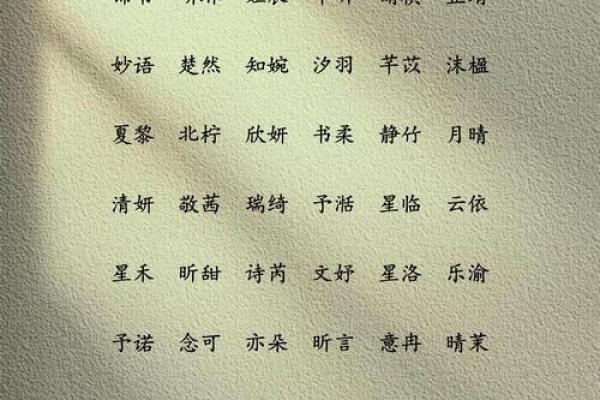 妙语 楚然 知婉 汐羽 芊苡 沫楹
夏黎 北柠 欣妍 书柔 静竹 月晴
清妍 敬茜 瑞绮 予湉 星临 云依
星禾 昕甜 诗芮 文妤 星洛 乐渝
予诺 念可 亦朵 昕言 意冉 晴茉